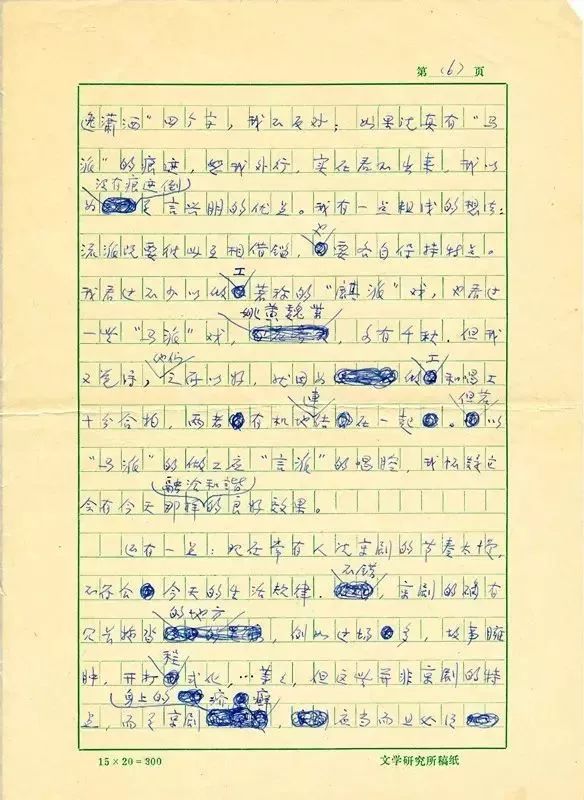 第(6)页
逸潇洒"四个字，我不反对；如果说真有"马
派"的痕迹，恕我外行，实在看不出来，我以
没有痕迹倒
为是言兴朋的优点。我有一点粗浅的想法：
流派既要彼此互相借鉴，也要各自保持特点。
我看过不少以做工著称的"麒派"戏，也看过
姚黄魏紫
一些"马派"戏，，各有千秋。但我
又觉得，他们之所以好，就因为做工和唱工
十分合拍，两者有机地连结在一起。但若以
"马派"的做工"言派"的唱腔，我怀疑它
融洽和谐
会有今天那样的良好效果。
还有一点：现在常有人说京剧的节奏太慢，
不符合今天的生活规律。不错，京剧的确有
的地方
冗长拖沓，例如过场多，故事臃
肿，开打程式化，…等等，但这些并非京剧的特
身上的疥癣
点，而是京剧，应当而且必须
15×20=300 文学研究所稿纸